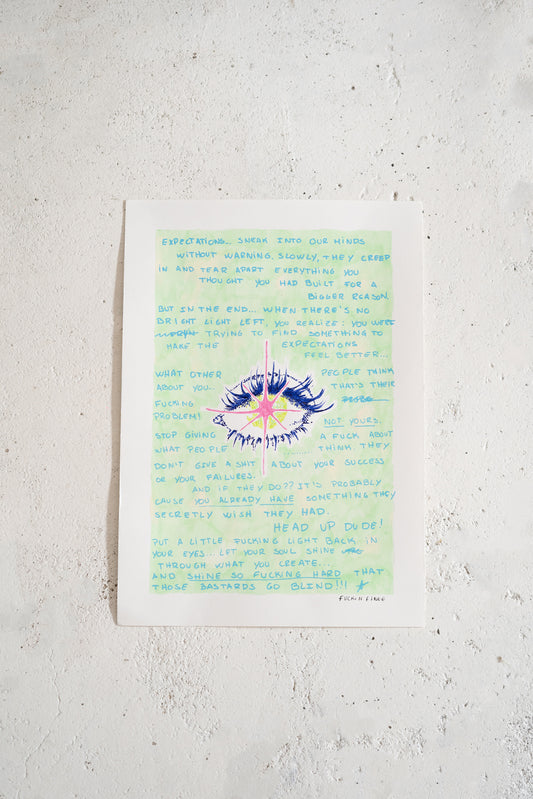 EXPECTATIONS.. SNEAK INTO OUR MINDS
WITHOUT WARNING. SLOWLY, THEY CREEP
IN AND TEAR APART EVERYTHING YOU
THOUGHT YOU HAD BUILT FOR A
BIGGER REASON.
BUT IN THE END... WHEN THERE'S NO
BRIGHT LIGHT LEFT, YOU REALIZE: YOU WERE
TRYING TO FIND SOMETHING TO
MAKE THE EXPECTATIONS
FEEL BETTER...
WHAT OTHER PEOPLE THINK
ABOUT YOU.. THAT'S THEIR
FUCKING
PROBLEM!
NOT YOURS.
STOP GIVING A FUCK ABOUT
WHAT PEOPLE ....... THINK. THEY
DON'T GIVE A SHIT ABOUT YOUR SUCCESS
OR YOUR FAILURES.
AND IF THEY DO?? IT'S PROBABLY
CAUSE YOU ALREADY HAVE SOMETHING THEY
SECRETLY WISH THEY HAD.
HEAD UP DUDE!
PUT A LITTLE FUCKING LIGHT BACK IN
YOUR EYES... LET YOUR SOUL SHINE
THROUGH WHAT YOU CREATE...
AND SHINE SO FUCKING HARD THAT
THOSE BASTARDS GO BLIND!!!
FUCKIN